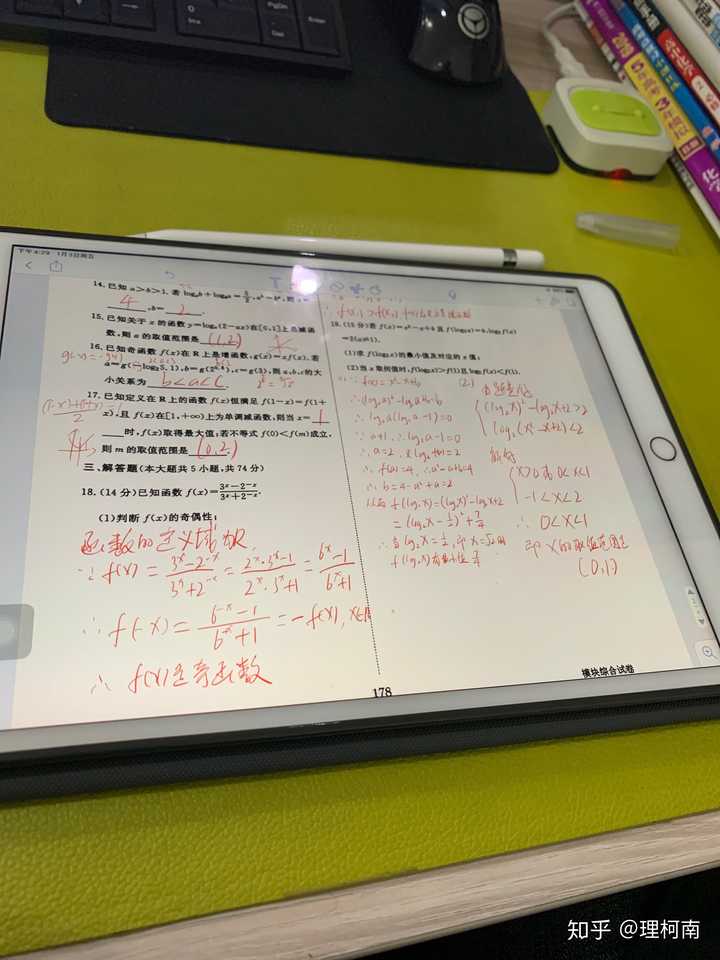 下午4:29 1月3日周五
14. 已知 a>b>1. 若 logₐb+log_b a=5/2, aᵇ=bᵃ, 则 a=
4 ,b= 2 .
15. 已知关于 x 的函数 y=logₐ(2-ax)在[0,1]上是减函
数,则 a 的取值范围是 (1,2)
16. 已知奇函数 f(x)在 R 上是增函数,g(x)=xf(x). 若
a=g(-log₂5.1),b=g(2^0.8),c=g(3),则 a,b,c的大
小关系为 b<a<c .
17. 已知定义在 R 上的函数 f(x)恒满足 f(1-x)=f(1+
x),且 f(x)在[1,+∞)上为单调减函数,则当 x= 1
时,f(x)取得最大值;若不等式 f(0)<f(m)成立,
则 m 的取值范围是 (0,2)
三、解答题(本大题共 5 小题,共 74 分)
18. (14 分)已知函数 f(x)=(3ˣ-2⁻ˣ)/(3ˣ+2⁻ˣ).
(1)判断 f(x)的奇偶性;
函数的定义域为R,
∵ f(x) = (3ˣ-2⁻ˣ)/(3ˣ+2⁻ˣ) = (2ˣ·3ˣ-1)/(2ˣ·3ˣ+1) = (6ˣ-1)/(6ˣ+1)
∴ f(-x) = (6⁻ˣ-1)/(6⁻ˣ+1) = -f(x), x∈R
∴ f(x)是奇函数
19. (15 分)若 f(x)=x²-x+b,且 f(log₂a)=b,log₂f(a)
=2(a≠1).
(1)求 f(log₂x)的最小值及对应的 x 值;
(2)当 x 取何值时,f(log₂x)>f(1)且 log₂f(x)<f(1).
∵ f(x)=x²-x+b
∴ (log₂a)²-log₂a+b=b
∴ log₂a(log₂a-1)=0
∵ a≠1, ∴ log₂a-1=0
∴ a=2, 又log₂f(a)=2
∴ f(a)=4, ∴ a²-a+b=4
∴ b=4-a²+a=2
从而 f(log₂x)=(log₂x)²-log₂x+2
=(log₂x-1/2)²+7/4
∴ 当 log₂x=1/2, 即 x=√2时
f(log₂x)有最小值 7/4
(2) 由题意知
(log₂x)²-log₂x+2>2
log₂(x²-x+2)<2
解得
x>2或0<x<1
-1<x<2
∴ 0<x<1
即 x的取值范围是
(0,1)
178
模块综合试卷
知乎 @理柯南